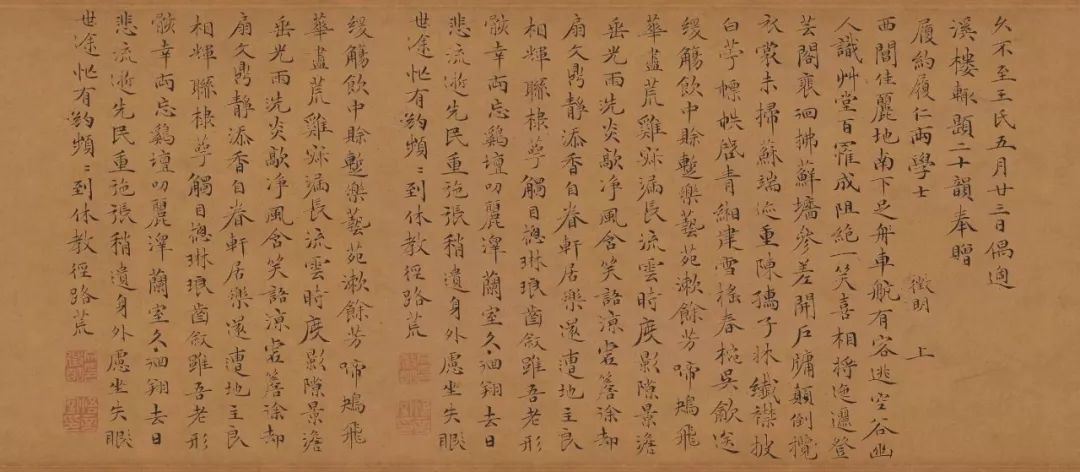 久不至王氏五月廿三日偶過
溪樓輒題二十韻奉贈
履約履仁兩學士 徵明 上
西閶佳麗地南下足舟車航有客逃空谷幽
人識艸堂百罹成阻絕一笑喜相將迤邐登
芸閣裵洄拂蘚牆參差開戶牖顛倒攬
衣裳未掃蘇端迹重陳孺子牀纖襟披
白苧幖帙啓青緗津雪搖春椀吳歈送
緩觴飲中賒塹樂藝苑漱餘芳啼鴂飛
華盡荒雞寐漏長流雲時度影隙景澹
垂光雨洗炎歊淨風含笑語涼簷涂却
扇文鼎靜添香自眷軒居樂還遭地主良
相輝聯棣萼觸目摠琳琅齒敘雖吾老形
骸幸兩忘鷄壇叨麗澤蘭室久洄翔去日
悲流逝先民重弛張稍遺身外慮坐失眼
世途忙有約頻〻到休教徑路荒
緩觴飲中賒塹樂藝苑漱餘芳啼鴂飛
華盡荒雞寐漏長流雲時度影隙景澹
垂光雨洗炎歊淨風含笑語涼簷涂却
扇文鼎靜添香自眷軒居樂還遭地主良
相輝聯棣萼觸目摠琳琅齒敘雖吾老形
骸幸兩忘鷄壇叨麗澤蘭室久洄翔去日
悲流逝先民重弛張稍遺身外慮坐失眼
世途忙有約頻〻到休教徑路荒